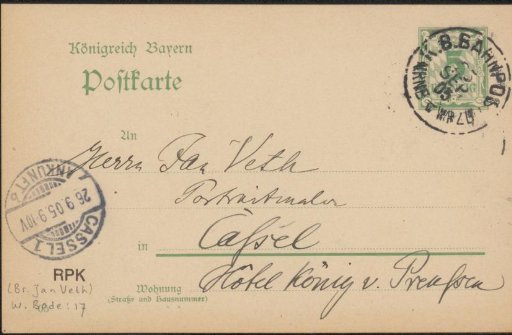 Königreich Bayern
Postkarte
K.B.BAHNPOST
SEP
05
An
Herrn Jan Veth
Portraitmaler
ANKUNFT
26.9.05.9-10V
CASSEL 1
in Cassel
RPK
(Br. Jan Veth)
W. Bode: 17
Wohnung
(Straße und Hausnummer)
Hôtel König v. Preußen